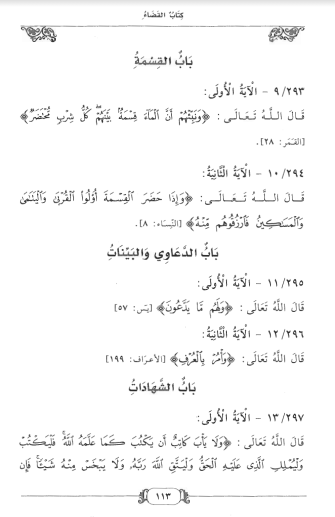 كِتَابُ القَضَاءِ
بَابُ القِسْمَةِ
٩/٢٩٣ - الْآيَةُ الْأُولَى:
قَالَ اللَّهُ تَعَالَى: ﴿وَنَبِّئْهُمْ أَنَّ الْمَاءَ قِسْمَةٌ بَيْنَهُمْ كُلُّ شِرْبٍ مُحْتَضَرٌ﴾
[القمر: ٢٨].
١٠/٢٩٤ - الْآيَةُ الثَّانِيَةُ:
قَالَ اللَّهُ تَعَالَى: ﴿وَإِذَا حَضَرَ الْقِسْمَةَ أُولُو الْقُرْبَى وَالْيَتَامَى
وَالْمَسَاكِينُ فَارْزُقُوهُمْ مِنْهُ﴾ [النِّسَاء: ٨].
بَابُ الدَّعَاوِي وَالبَيِّنَاتِ
١١/٢٩٥ - الْآيَةُ الْأُولَى:
قَالَ اللَّهُ تَعَالَى: ﴿وَلَهُمْ مَا يَدَّعُونَ﴾ [يس: ٥٧]
١٢/٢٩٦ - الْآيَةُ الثَّانِيَةُ:
قَالَ اللَّهُ تَعَالَى: ﴿وَأْمُرْ بِالْعُرْفِ﴾ [الأعراف: ١٩٩]
بَابُ الشَّهَادَاتِ
١٣/٢٩٧ - الْآيَةُ الْأُولَى:
قَالَ اللَّهُ تَعَالَى: ﴿وَلَا يَأْبَ كَاتِبٌ أَنْ يَكْتُبَ كَمَا عَلَّمَهُ اللَّهُ فَلْيَكْتُبْ
وَلْيُمْلِلِ الَّذِي عَلَيْهِ الْحَقُّ وَلْيَتَّقِ اللَّهَ رَبَّهُ وَلَا يَبْخَسْ مِنْهُ شَيْئًا فَإِنْ
١١٣